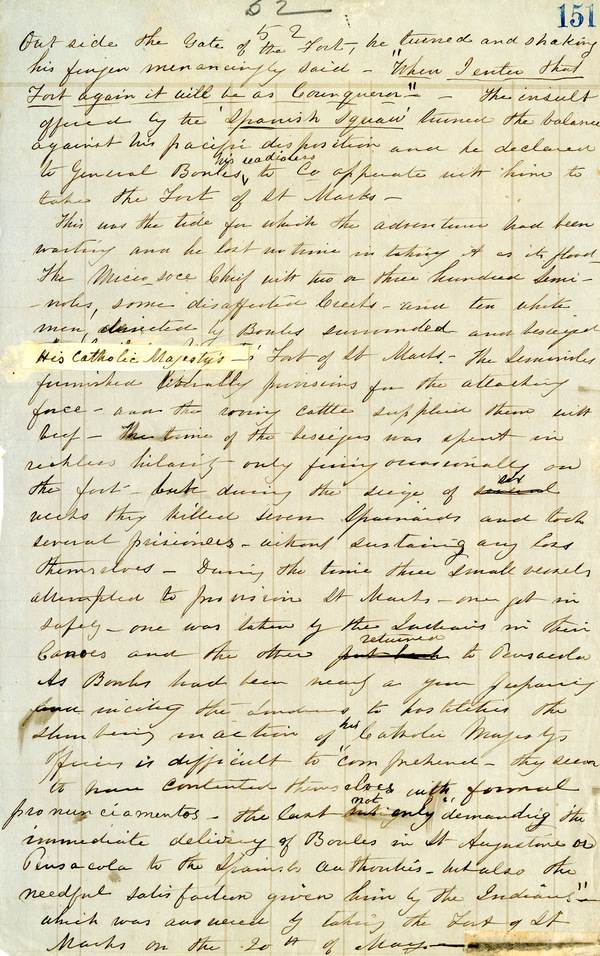 52
151
52
Out side the Gate of the Fort, he turned and shaking
his finger menancingly said - "When I enter that
Fort again it will be as Counqueror" - The insult
offered by the 'Spanish Squaw' turned the balance
against his pacific disposition and he declared
to General Bowles his readiness to Co opperate with him to
take the Fort of St Marks -
This was the tide for which the adventurer had been
waiting and he lost no time in taking it as its flood
The Micco soce Chief with two or three hundred Semi-
-noles, some disaffected Creeks - and ten white
men, directed by Bowles surrounded and besieged
His Catholic Majesty's - Fort of St Marks - The Seminoles
furnished liberally provisions for the attacking
force - and the roving cattle supplied them with
beef - The time of the besiegers was spent in
reckless hilarity only firing occasionally on
the fort - but during the siege of several six
weeks they killed seven Spainiards and took
several prisioners - without sustaining any loss
themselves - During the time three small vessels
attempted to provision St Marks - one got in
safely - one was taken by the Indians in their
Canoes and the other put back returned to Pensacola
As Bowles had been nearly a year preparing
and inciting the Indians to hostilities the
slumbering inaction of his Catholic Majestys
Officers is difficult to comprehend - they seem
to have contented themselves with formal
pronunciamentos - the last not only "demanding the
immediate delivery of Bowles in St Augustine or
Pensacola to the Spanish authorities - but also the
needful satisfaction given him by the Indians" -
which was answered by taking the Fort of St
Marks on the 20th of May -